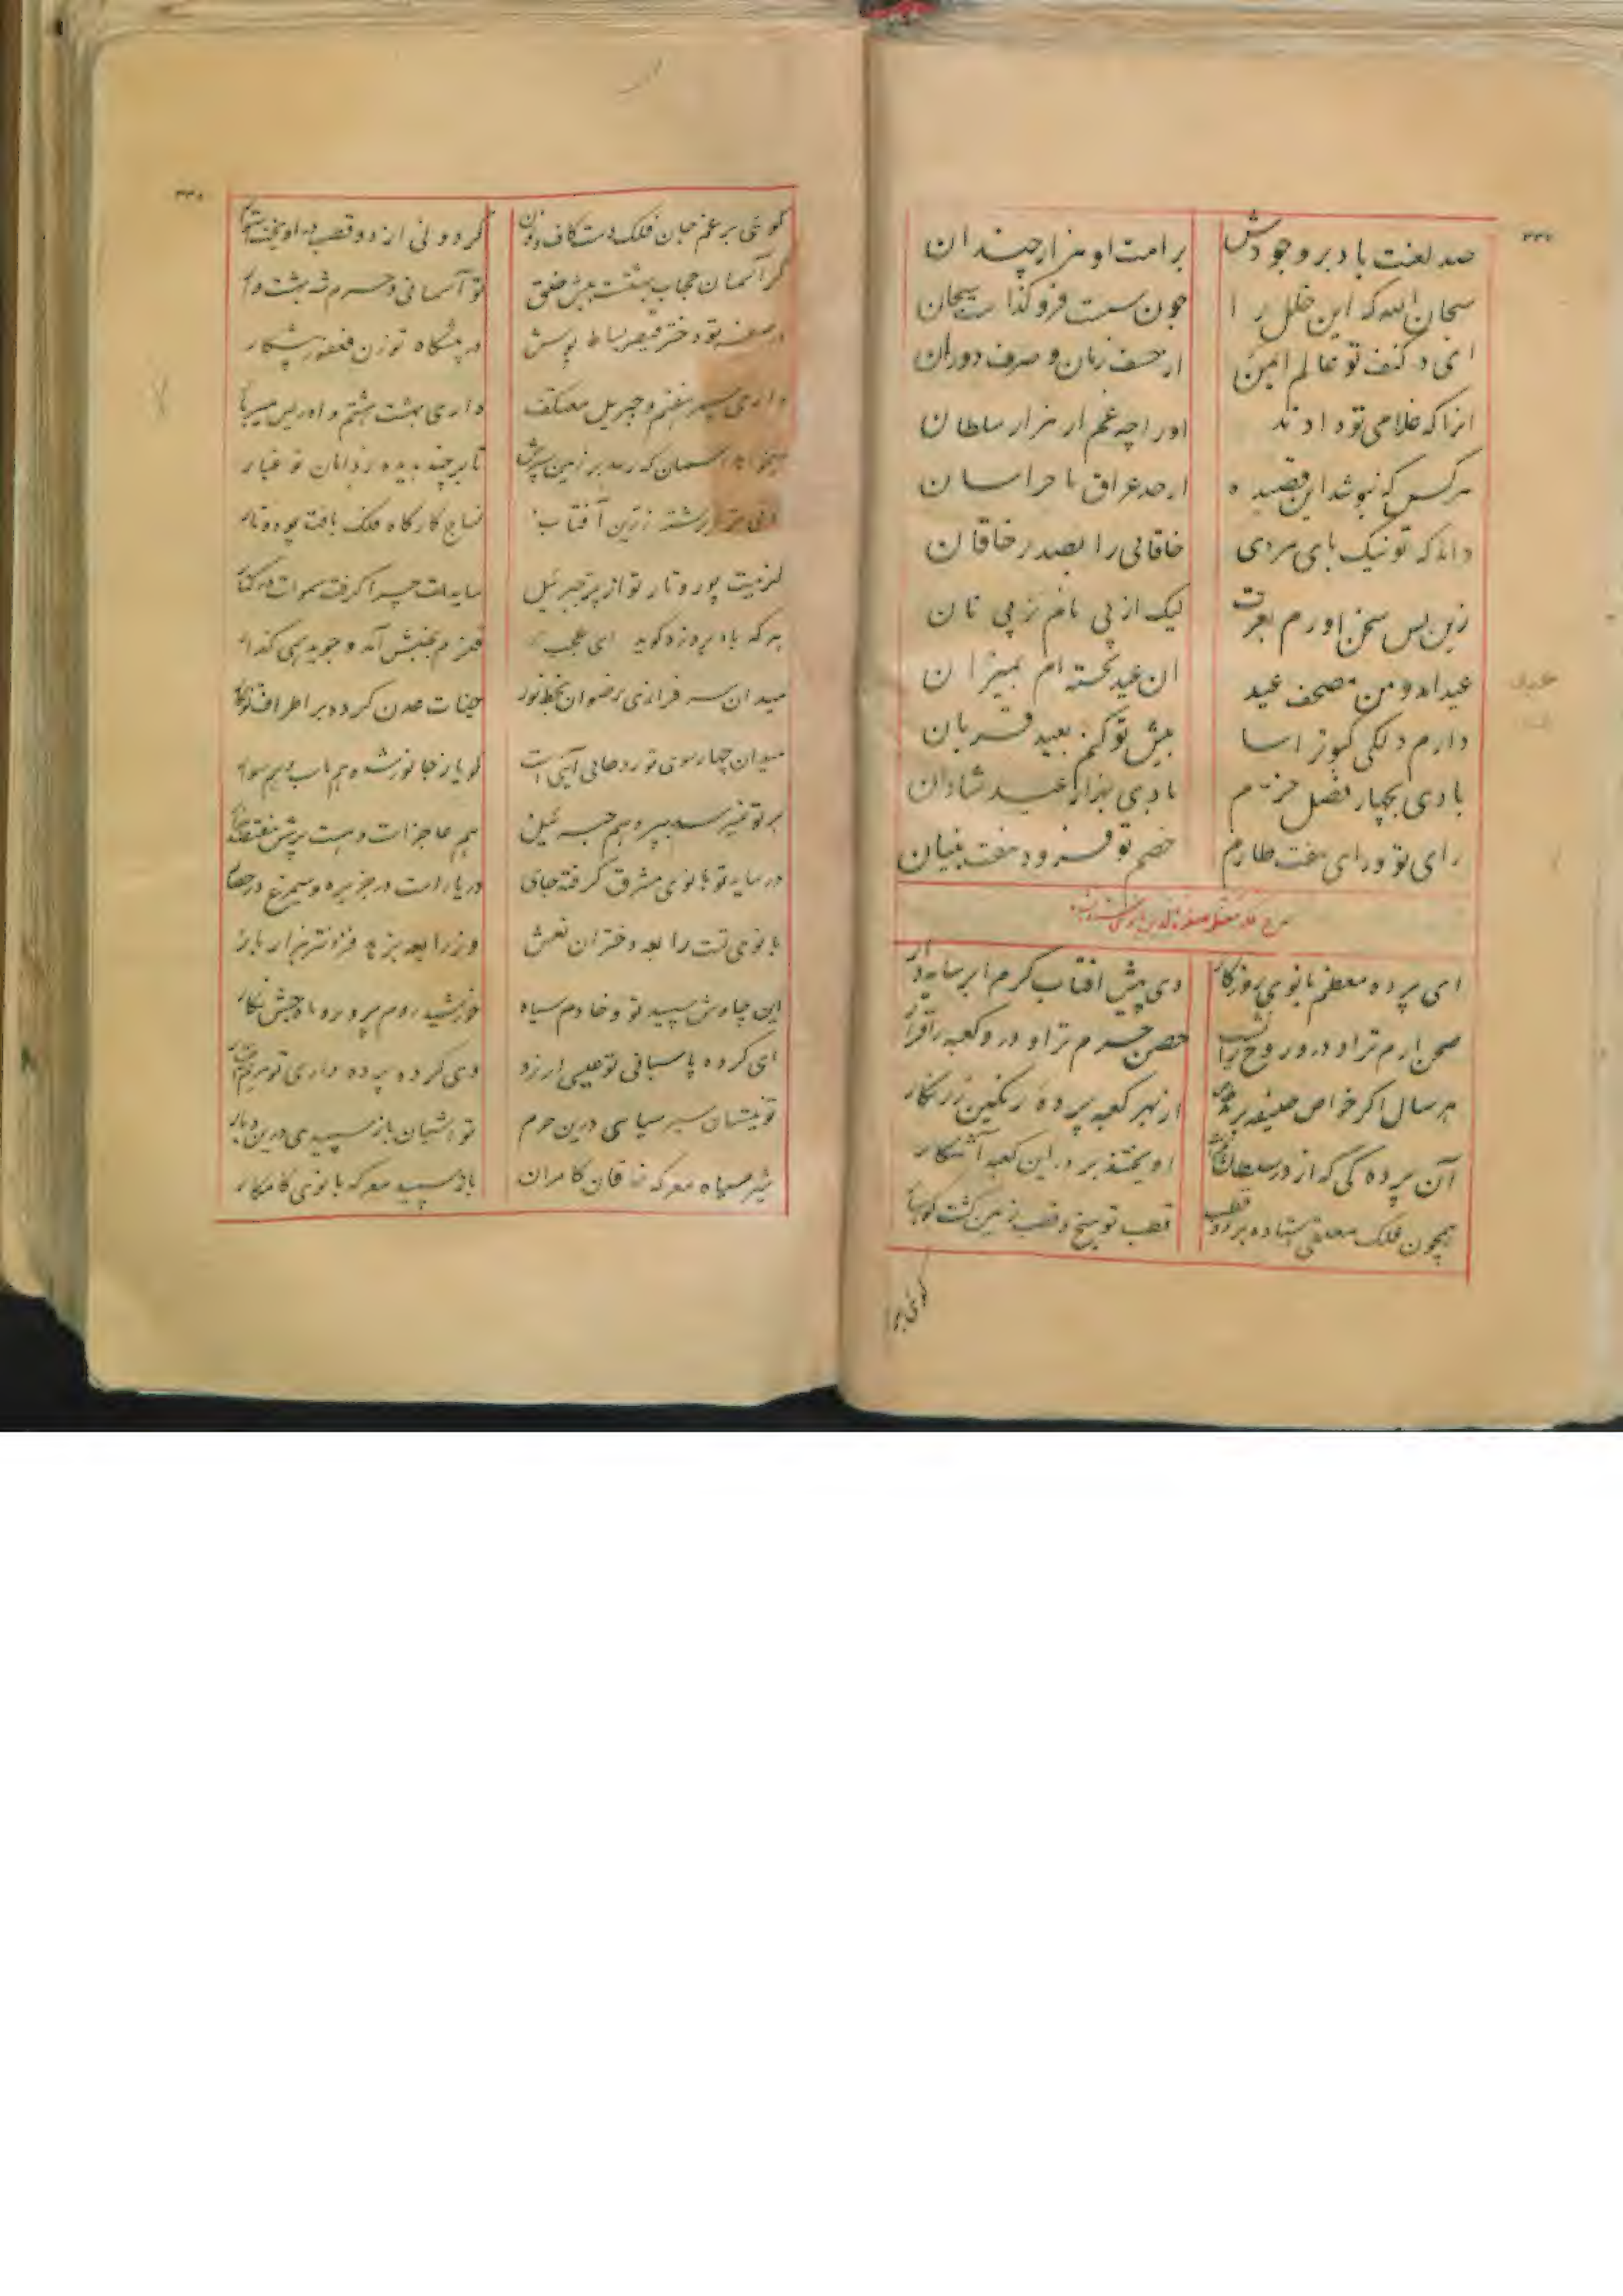 ۳۳۷
صد لعنت باد بر وجودش برامت او هزار چندان
سبحان الله که این خلل را چون سبت فرو گذاشت سبحان
ای در کنف تو عالم ایمن از خسف زمان و صرف دوران
انرا که غلامی تو دادند او را چه غم از هزار سلطان
هرکس که نیوشد این قصیده از حد عراق تا خراسان
داند که تو نیک پای مردی خاقانی را بصدر خاقان
زین پس سخن اورم بعرت لیک از پی نام نز پی نان
عید امد و من مصحف عید ان عید نجسته ام بمیزان
دارم دلکی کبوتر اسا پیش تو کنم بعید قربان
بادی بچهار فصل خرم بادی بهزار عید شادان
رای تو ورای هفت طارم خصم تو فرود هفت بنیان
ای پرده معظم بانوی روزکار وی پیش افتاب کرم ابر سایه دار
صحن ارم ترا و درو روح را نشست حصن حرم ترا و درو کعبه را قرار
هر سال اکر خواص خلیفه برند خاص از بهر کعبه پرده رنکین زرنکار
آن پرده کی که از در سلطان اویختند بر در این کعبه آشکار
همچون فلک معلق استاده بر دو قطب قطب تو میخ و قطب زمین کشت کوهسار
گوئی بر
۳۳۸
گوئی برغم جان فلک دست کاف و نون کردونی از دو قطب در اویخت استوار
گر آسمان حجاب بهشتست پیش خلق تو آسمانی و حرم شه بهشت وار
در صفه تو دختر قیصر بساط بوس در پیشگاه تو زن فغفور پیشکار
داری سپهر هفتم و جبریل معتکف داری بهشت هشتم و ادریس میر بار
میخواهد آسمان که رسد بر زمین سرش تا بر چند بدیده ز دامان تو غبار
نی نی هزار رشته زرین آفتاب نساج کارگاه فلک بافت پود و تار
گر نیست پود و تار تو از پر جبرئیل سایه‌ات چرا گرفت سموات در کنار
هرکه باد بر وزد گوید ای عجب قلزم بجنبش آمد و جوید همی گذار
میدان سر فرازی رضوان بخط نور جنات عدن کرده بر اطراف تو نکار
میدان چهار سوی تو روحانی آیتی است گویا ز جانور شده هم اسب و هم سوار
بر تو نمیرسد پر وهم جبرئیل هم عاجزات دست
در سایه تو بانوی مشرق گرفته جای دریا در است در جزیره و سیمرغ در حصار
بانوی تست رابعه دختران نعش وز رابعه بزهد فزونتر هزار بار
این چاوش سپید تو و خادم سیاه خورشید روم پرور و ماه حبش نکار
ای کرده پاسبانی تو عیسی ارزو وی کرده پرده داری تو مریم اختیار
تو بیشان شیر سیاهی درین حرم تو آشیان باز سپیدی درین دیار
شیر سیاه معرکه خاقان کامران باز سپید معرکه بانوی کامکار